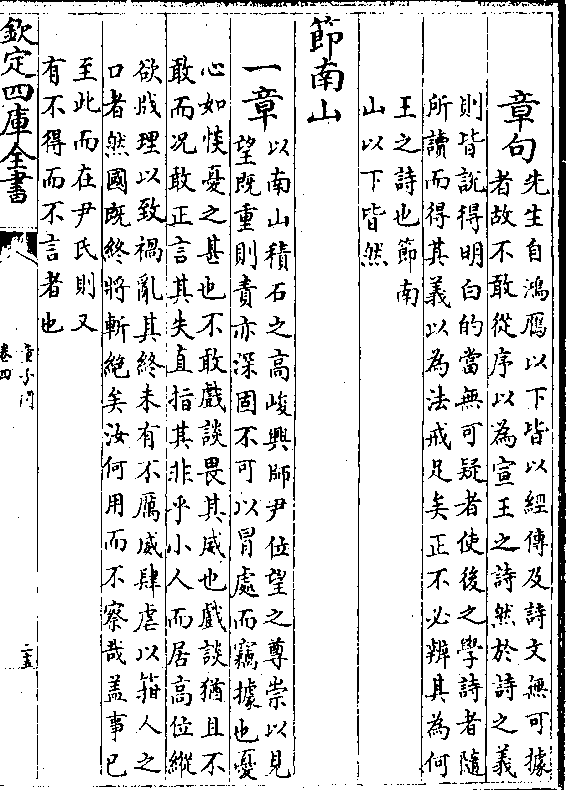 章句先生自鴻鴈以下皆以經傳及詩文無可據
者故不敢從序以為宣王之詩然於詩之義
則皆說得明白的當無可疑者使後之學詩者隨
所讀而得其義以為法戒足矣正不必辨其為何
王之詩也節南
山以下皆然
節南山
一章以南山積石之高峻興師尹位望之尊崇以見
望既重則責亦深固不可以冒處而竊據也憂
心如惔憂之甚也不敢戲談畏其威也戲談猶且不
敢而况敢正言其失直指其非乎小人而居高位縱
欲戕理以致禍亂其終未有不厲威肆虐以箝人之
口者然國既終將斬絕矣汝何用而不察哉盖事已
至此而在尹氏則又
有不得而不言者也
欽定四庫全書
卷四